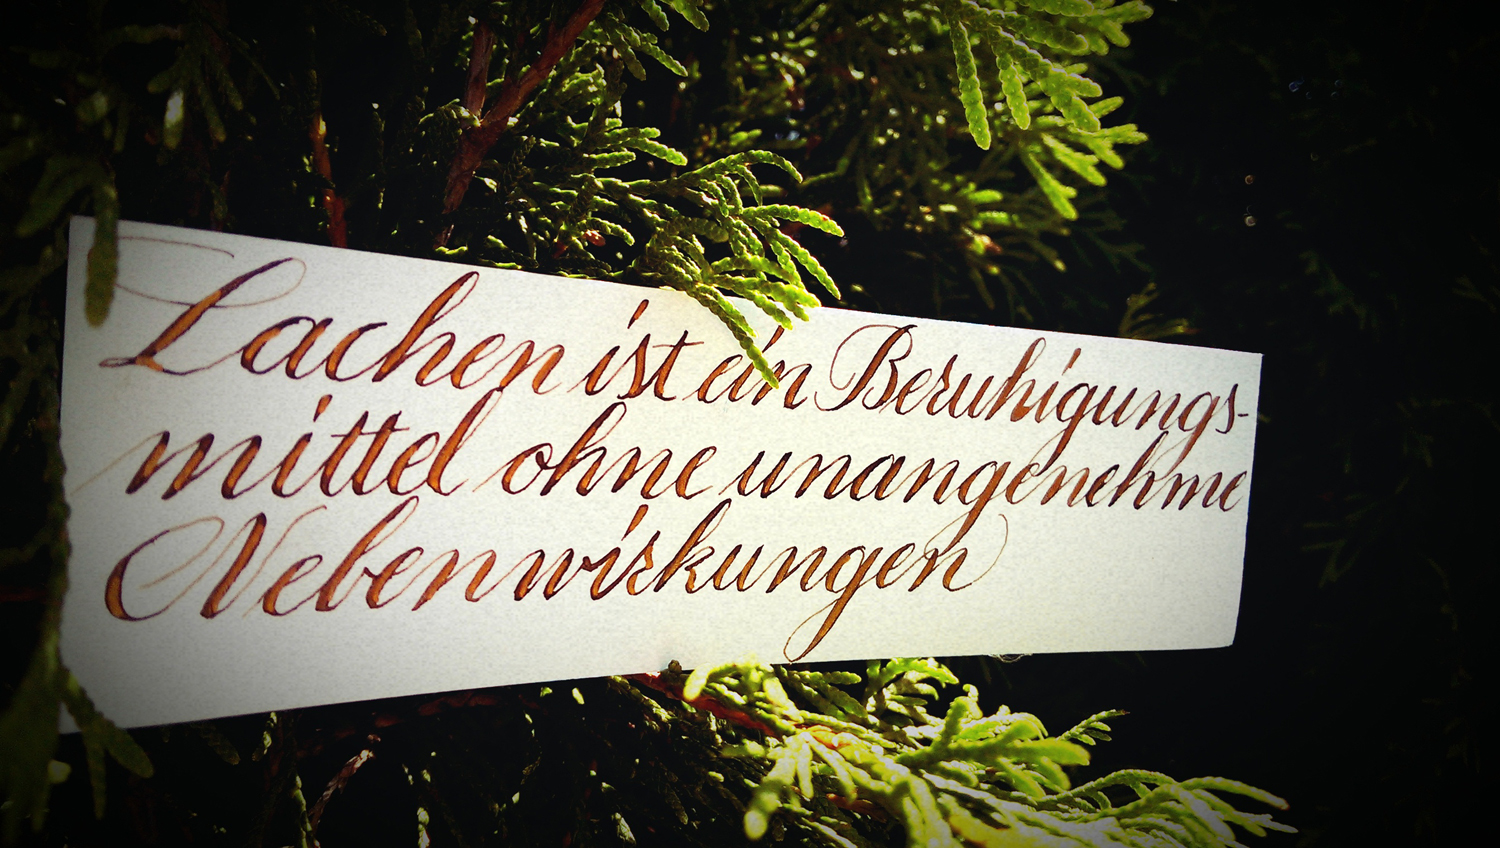 Lachen ist ein Beruhigungs-
mittel ohne unangenehme
Nebenwirkungen